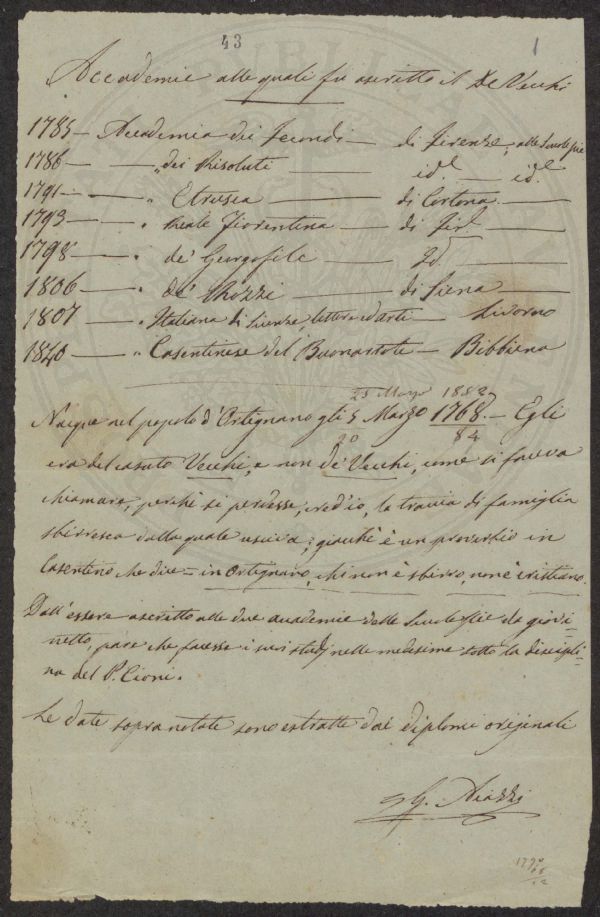 43
1
Accademie alle quali fu ascritto il De Vecchi
1785 — Accademia dei Fecondi — di Firenze, alle Scuole pie
1786 — „ dei Risoluti — id.e — id.e
1791 — „ Etrusca — di Cortona —
1793 — „ Reale Fiorentina — di Fir.e —
1798 — „ de' Georgofili — Id.
1806 — „ de' Rozzi — di Siena —
1807 — „ Italiana di Scienze, lettere ed arti — Livorno
1840 — „ Casentinese del Buonarroti — Bibbiena
25 Marzo 1852
Nacque nel popolo d'Ortignano gli 5 Marzo 1768 — Egli
20 84
era del casato Vecchi, e non de' Vecchi, come si faceva
chiamare, perchè si perdesse, cred'io, la traccia di famiglia
sbirresca dalla quale usciva; giacchè è un proverbio in
Casentino che dice = in Ortignano, chi non è sbirro, non è cristiano.
Dall'essere ascritto alle due accademie delle Scuole Pie da giovi=
netto, pare che facesse i suoi studj nelle medesime sotto la discipli=
na del P. Cioni.
Le date sopra notate sono estratte dai diplomi originali
G. Aiazzi